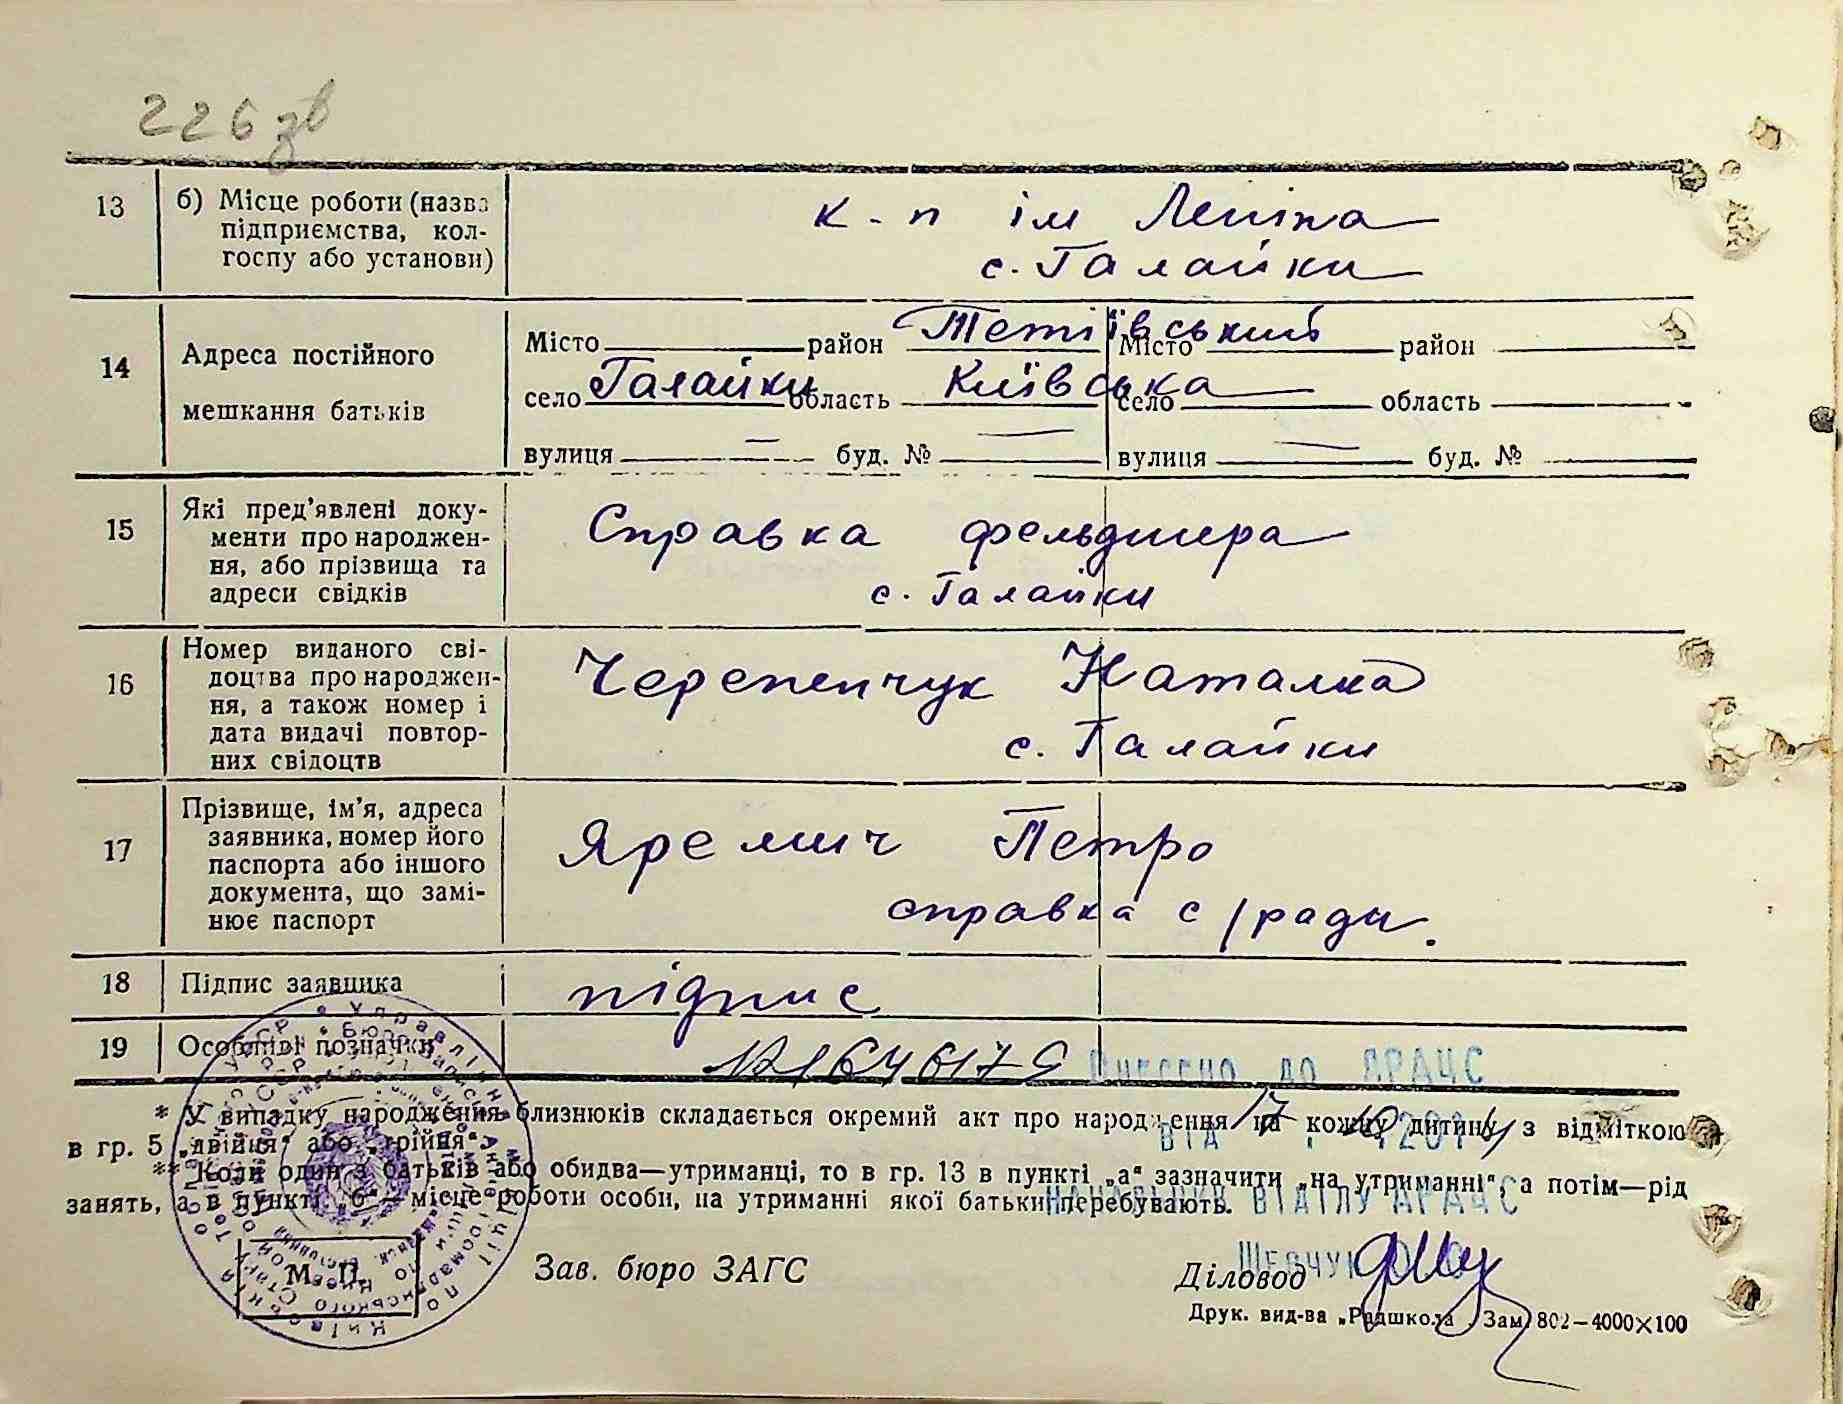 226 зв
13 б) Місце роботи (назва
підприємства, кол-
госпу або установи)
к-п ім Леніна
с. Галайки
14 Адреса постійного
мешкання батьків
Місто район Тетіївський Місто район
село Галайки область Київська село область
вулиця — буд. № — вулиця — буд. №
15 Які пред’явлені доку-
менти про народжен-
ня, або прізвища та
адреси свідків
Справка фельдшера
с. Галайки
16 Номер виданого сві-
доцтва про народжен-
ня, а також номер і
дата видачі повтор-
них свідоцтв
Черепенчук Наталка
с. Галайки
17 Прізвище, ім’я, адреса
заявника, номер його
паспорта або іншого
документа, що замі-
нює паспорт
Яремич Петро
справка с/ради.
18 Підпис заявника підпис
19 Особливі позначки
Внесено до ДРАЦС
* У випадку народження близнюків складається окремий акт про народження на кожну дитину з відміткою
в гр. 5 „двійня“ або „трійня“.
** Коли один з батьків або обидва—утриманці, то в гр. 13 в пункті „а“ зазначити „на утриманні“, а потім—рід
занять, а в пункті „б“ — місце роботи особи, на утриманні якої батьки перебувають.
від 17
начальник відділу ДРАЦС
Шевчук
М. П. Зав. бюро ЗАГС Діловод
Друк. вид-ва „Радшкола“. Зам. 802—4000×100